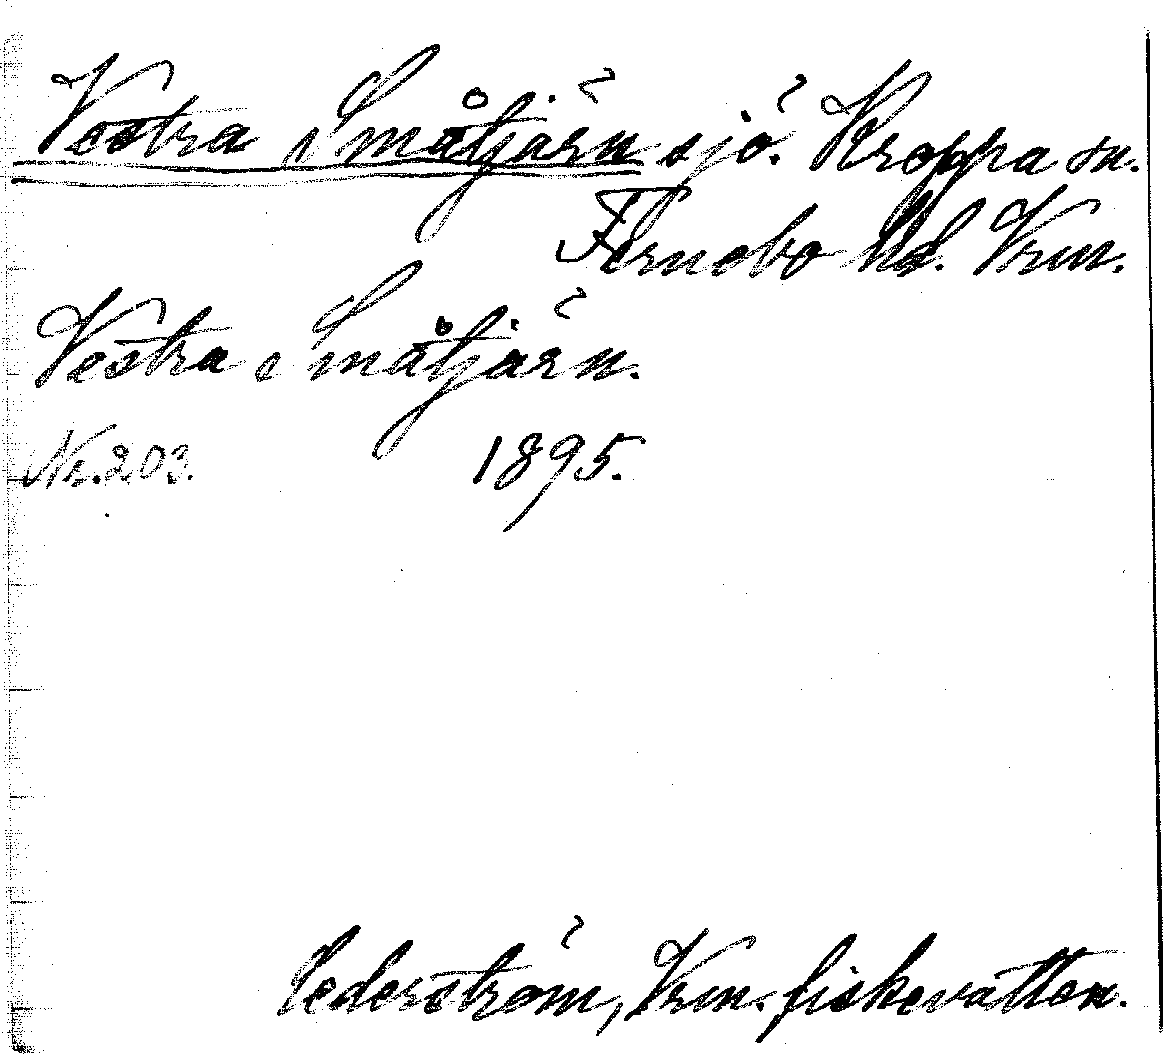 Vestra Småtjärn sjö. Kroppa sn.
Fernebo hd. Vrm.
Vestra Småtjärn.
Nr. 203. 1895.
Cederström, Vrm. fiskevatten.